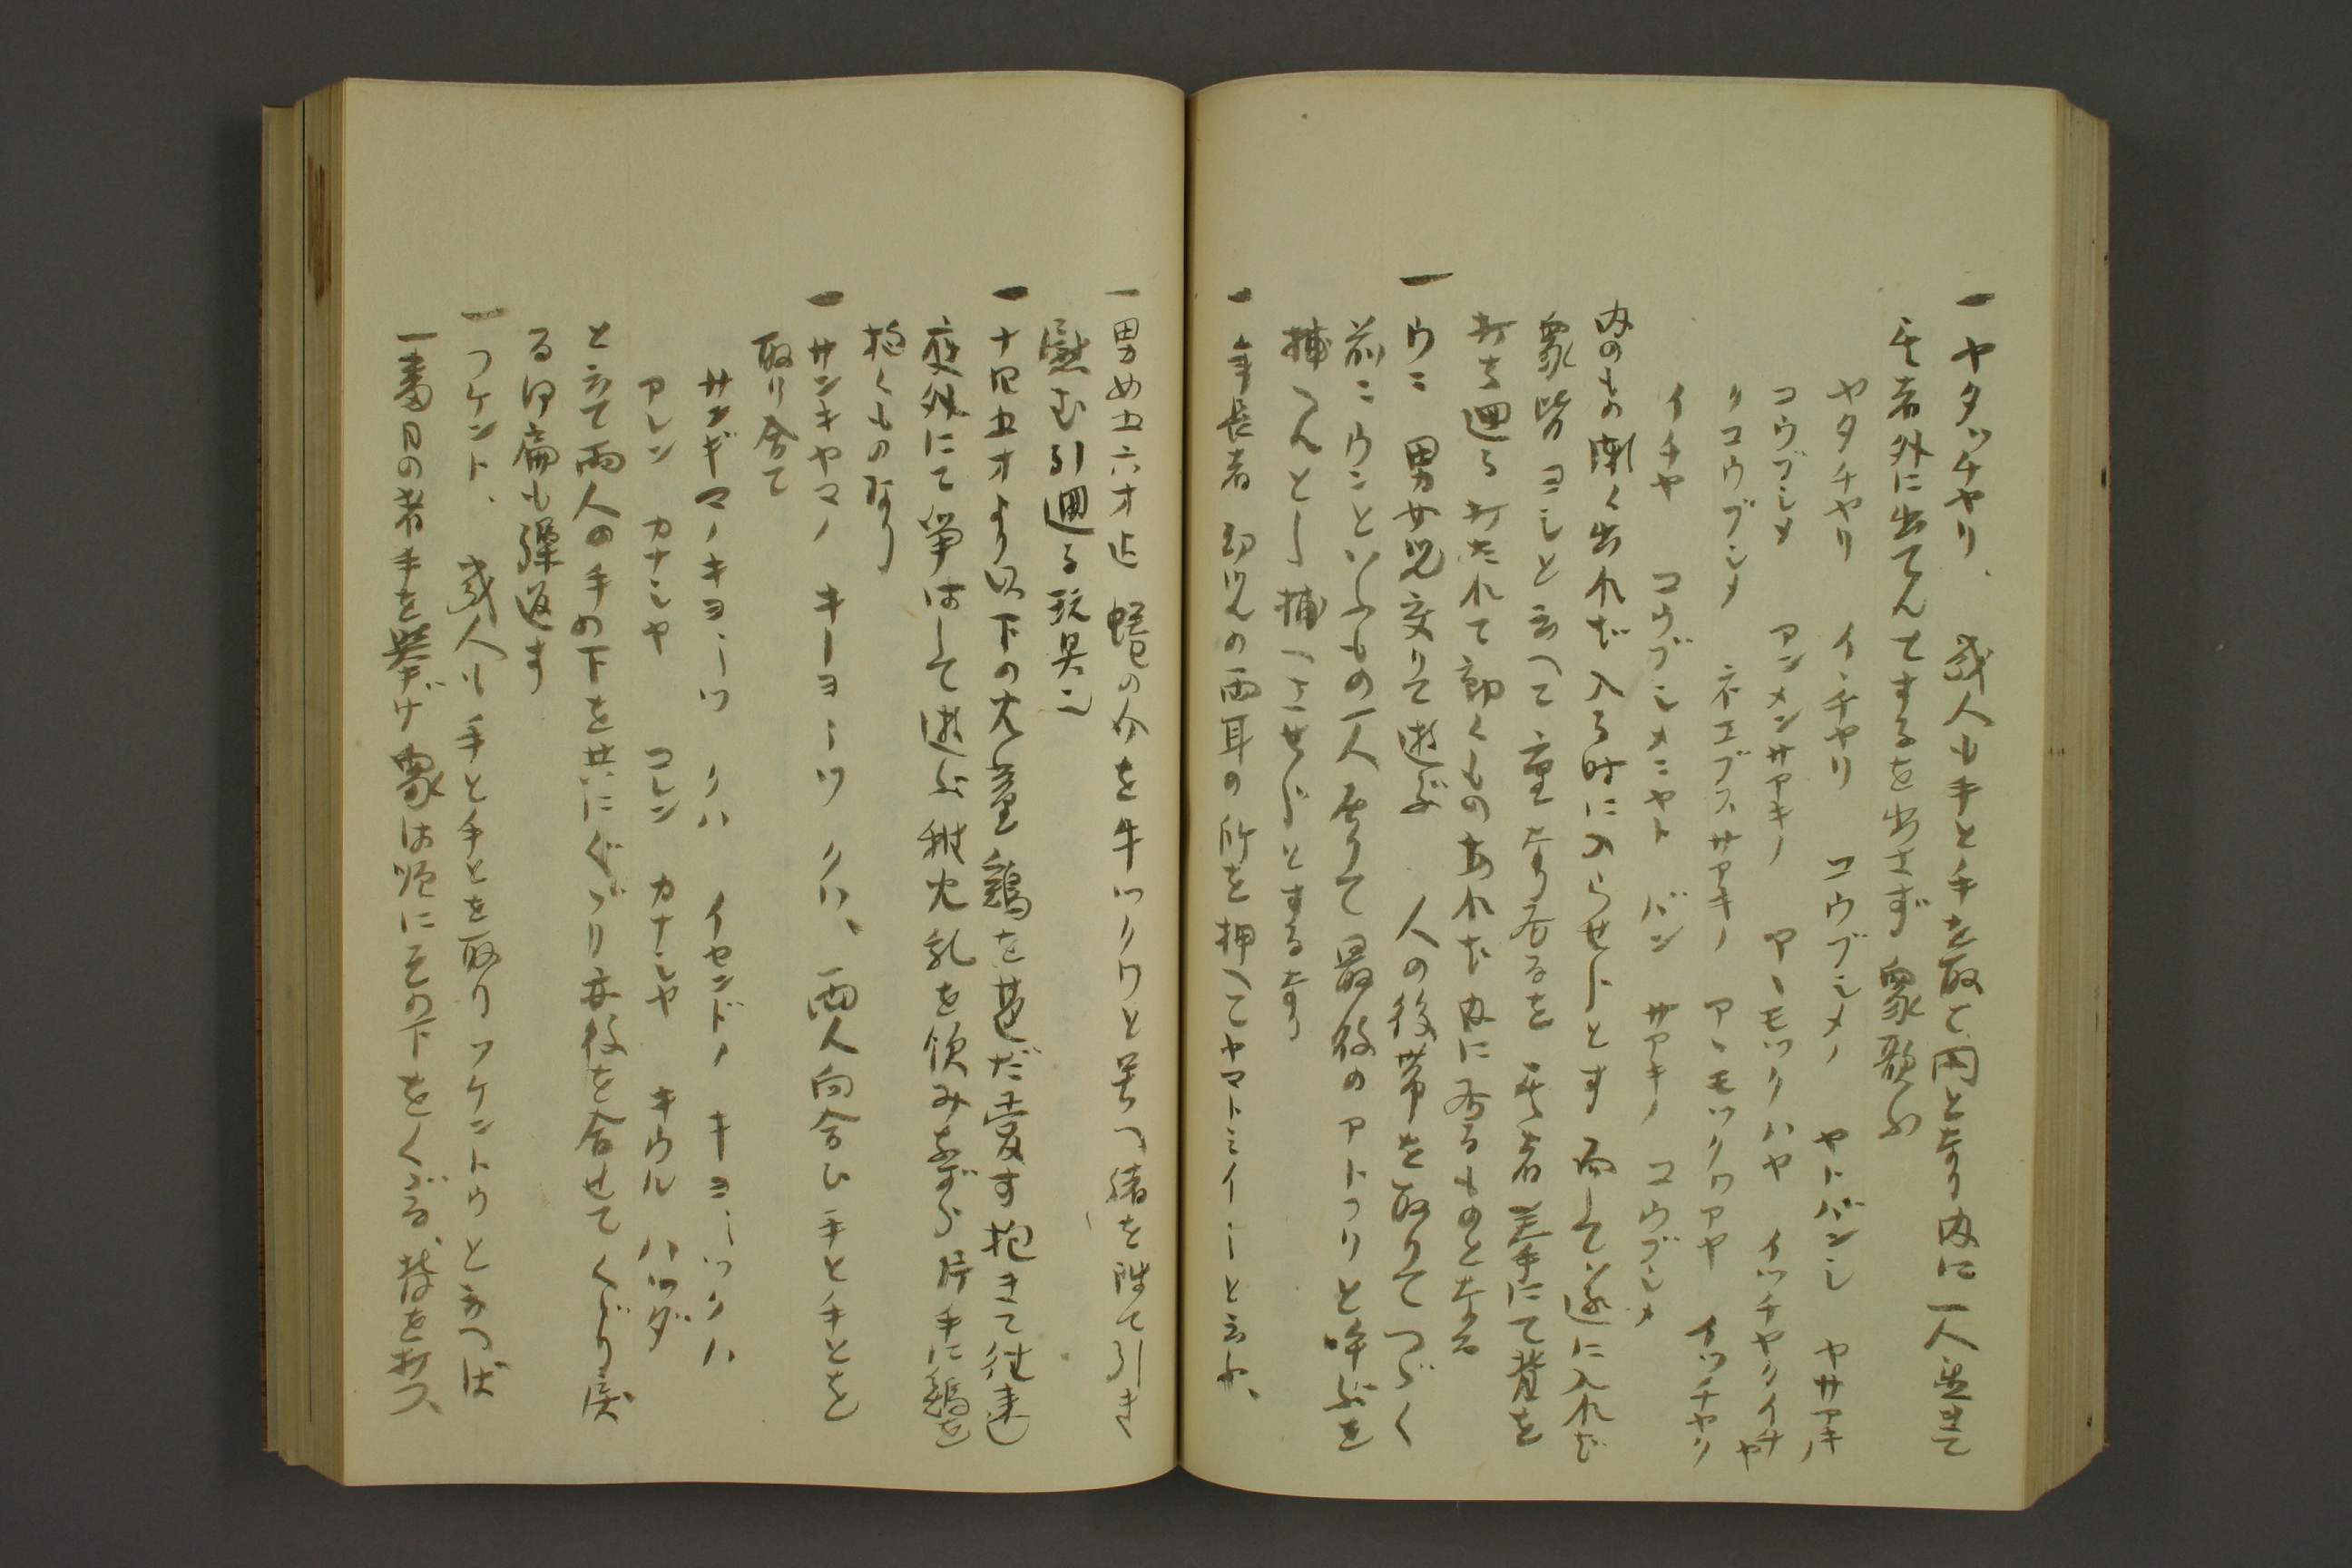 一ヤタッチヤリ、 幾人も手と手を取て円となり内に一人置きて
其者外に出てんてするを出さず衆歌ふ
ヤタチヤリ イヽチヤリ コウブシメノ ヤトバンシ ヤサアキノ
コウブシメ アンメンサアキノ アヽモツクハヤ イツチヤクイサヤ
クコウブシメ ネエブスサアキノ アヽモツクワアヤ イツチヤリ
イチヤ コウブシメニヤト バン サアキノ コウブシメ
内のもの漸く出れば入る時に入らせじとす而して遂に入れば
衆皆ヨシと云へて重なり居るを其者羊手にて背を
打ち廻る打たれて動くものあれば内に居るものとなる
一ウニ 男女児交りて遊ぶ 人の後帯を取りてつゞく
前ニウニといふもの一人居りて最後のアトフリと呼ぶを
捕へんとし捕へさせじとするなり
一年長者幼児の両耳の所を押へてヤマトミイーと云ふ、
一男女五六才迄蜷の介を牛ツノワと号へ緒を附て引き
慰む引廻る玩具也
一十四五才より以下の大童鶏を甚だ愛す抱きて往来し
庭外にて争はして遊ぶ稚児乳を飲みながら片手に鶏を
抱くものなり
一サンキヤマノ キーヨーツ クハ、両人向合ひ手と手とを
取り合て
サンギマノキヨーツ クハ イセンドノ キヨーツクハ
アレン カナシヤ コレン カナシヤ キウル ハツダ
と云て両人の手の下を共にくゞり亦後を合せてくゞり戻
る何扁も繰返す
一フケント、 幾人も手と手とを取りフケントウと云へば
一番目の者手を挙げ衆は順にその下をくゞる、